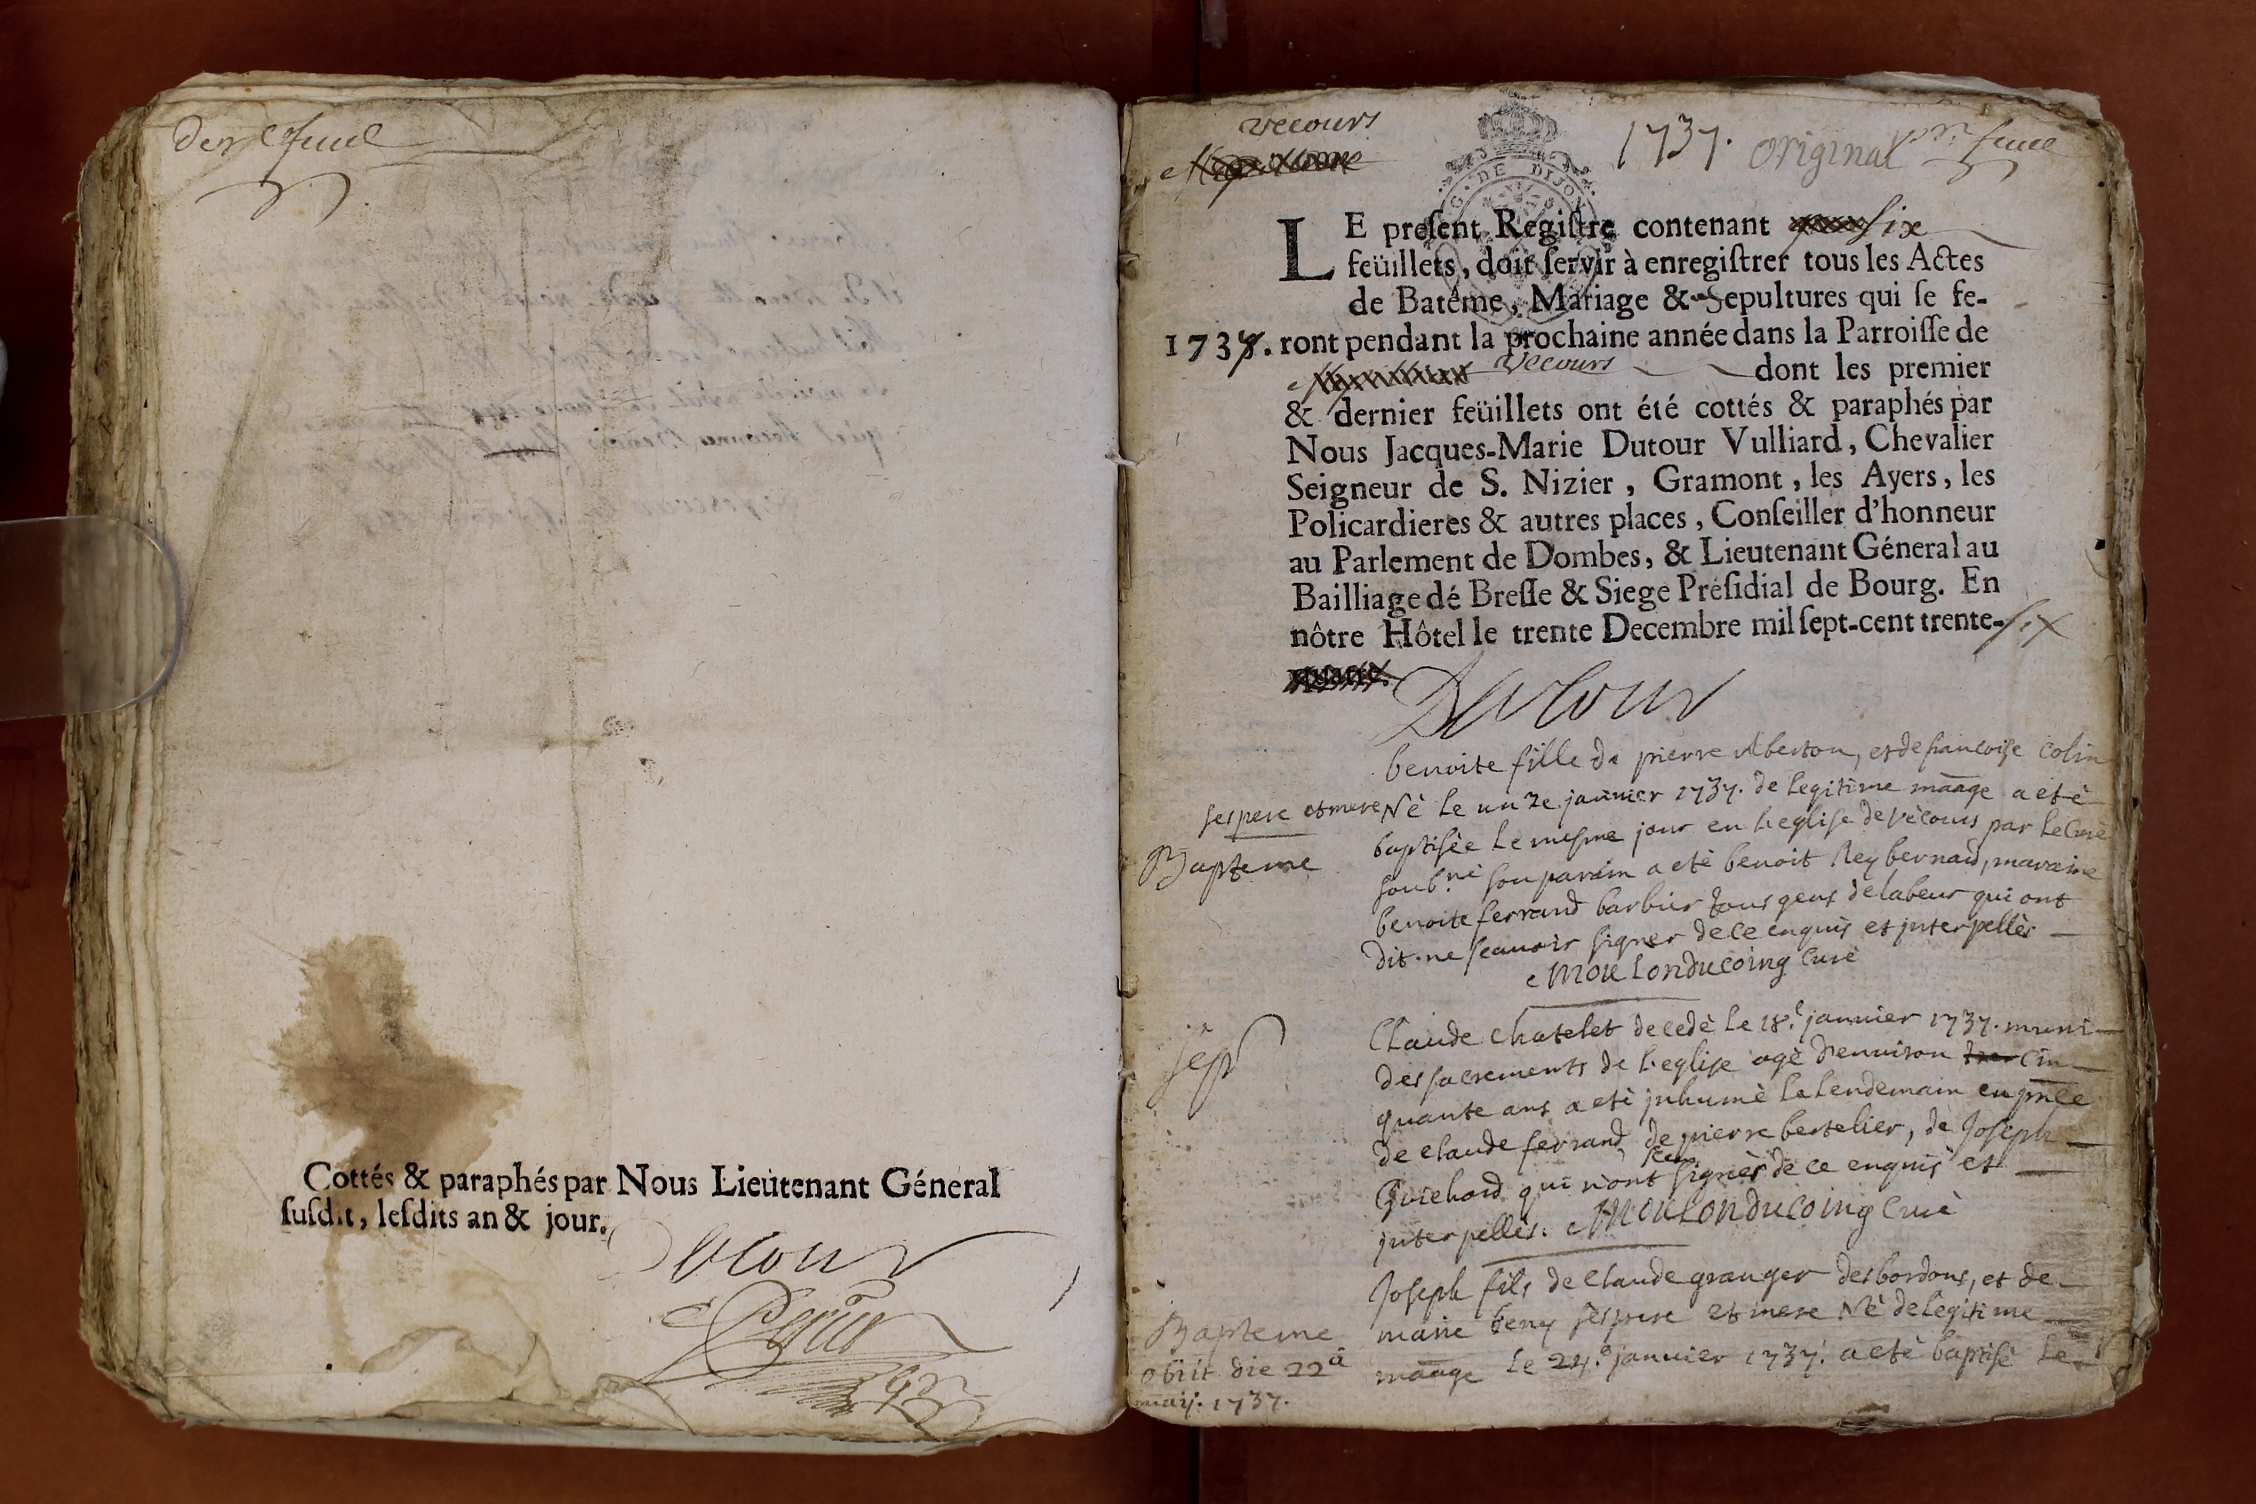 der feuil
Cottés & paraphés par Nous Lieutenant Géneral
susdit, lesdits an & jour.
Dutour
vecours
1737. original pr. feuil
G. DE DIJON
LE present Registre contenant six
feüillets, doit servir à enregistrer tous les Actes
de Batême, Mariage & Sepultures qui se fe-
1737. ront pendant la prochaine année dans la Parroisse de
Vecours dont les premier
& dernier feüillets ont été cottés & paraphés par
Nous Jacques-Marie Dutour Vulliard, Chevalier
Seigneur de S. Nizier, Gramont, les Ayers, les
Policardieres & autres places, Conseiller d'honneur
au Parlement de Dombes, & Lieutenant Géneral au
Bailliage dé Bresse & Siege Présidial de Bourg. En
nôtre Hôtel le trente Decembre mil sept-cent trente-six
quatre.
Dutour
benoite fille de pierre Alberton, et de francoise Colin
ses pere et mere Nè le unze janvier 1737. de legitime māage a etè
Bapteme
baptisèe le mesme jour en l'eglise de vècours par le Curè
soub.né son parain a etè benoit Rey bernard, maraine
benoite ferrand barbier tous gens de labeur qui ont
dit ne scavoir signer de ce enquis et interpellès
Moulonducoing Curè
sep
Claude Chatelet decedè le 18.e janvier 1737. muni
des sacrements de l'eglise agè d'environ cin-
quante ans a etè inhumè le lendemain en pnce
de Claude ferrand, de pierre bertelier, de Joseph
Guichard qui n'ont sceu signer de ce enquis et
interpellès. Moulonducoing Curè
Joseph fils de Claude granger des bordons, et de
Bapteme
marie beny ses pere et mere Nè de legitime
obiit die 22a
māage le 24.e janvier 1737. a etè baptisè le
maij. 1737.